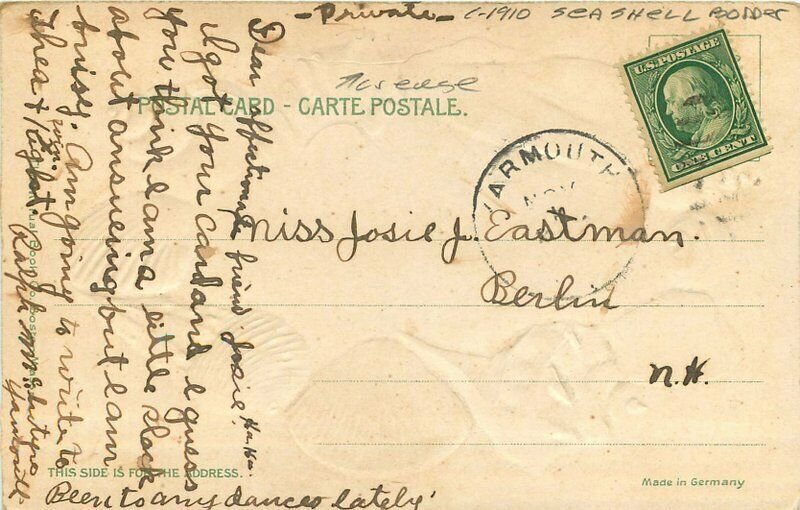 - Private -
C-1910 SEASHELL BORDER
U.S. POSTAGE
ONE CENT
POSTAL CARD - CARTE POSTALE.
YARMOUTH
NOV
Miss Josie J. Eastman.
Berlin
N.H.
Dear affectionate friend Josie. Ha Ha
I got your card and I guess
you think I am a little slack
about answering but I am
busy. Am going to write to
Thea to night
Ralph
Yarmouth
Been to any dances lately?
THIS SIDE IS FOR THE ADDRESS.
Made in Germany